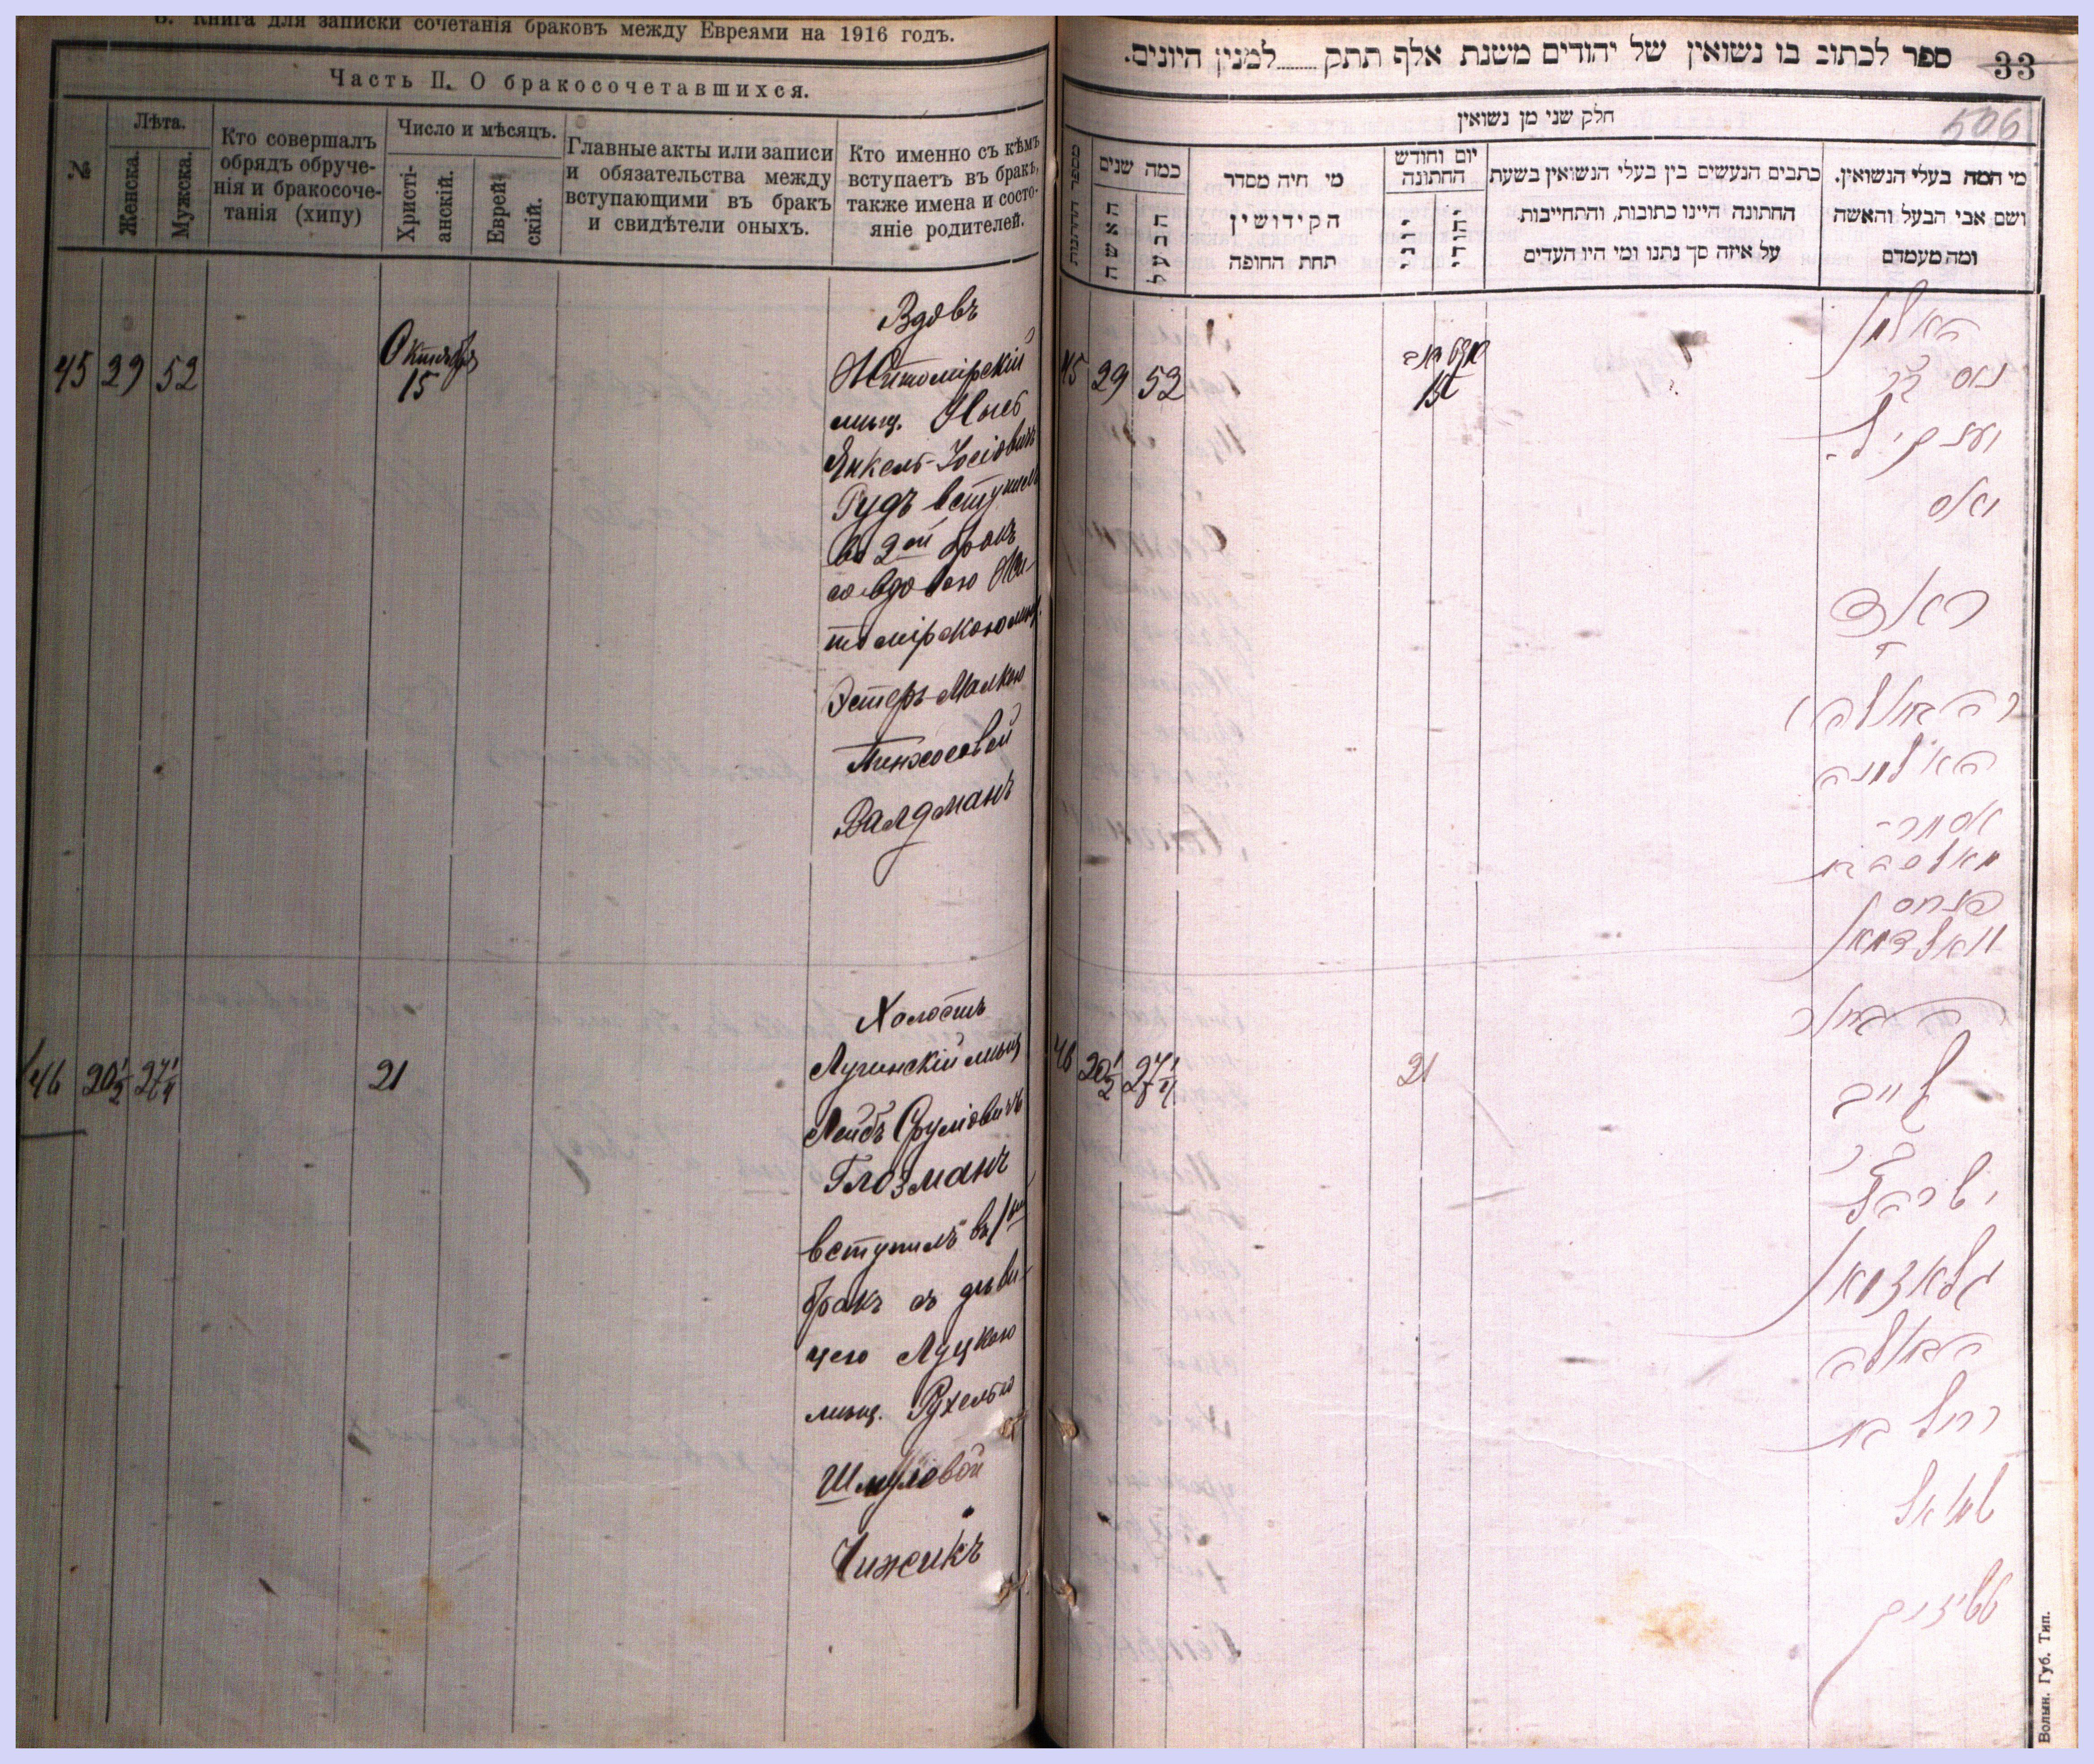 Книга для записки сочетанія браковъ между Евреями на 1916 годъ.
Часть II. О бракосочетавшихся.
№
Лѣта.
Женска.
Мужска.
Кто совершалъ
обрядъ обруче-
нія и бракосоче-
танія (хипу)
Число и мѣсяцъ.
Христі-
анскій.
Еврей-
скій.
Главные акты или записи
и обязательства между
вступающими въ бракъ
и свидѣтели оныхъ.
Кто именно съ кѣмъ
вступаетъ въ бракъ,
также имена и состо-
яніе родителей.
45 29 52
Октября
15
Вдовъ
Житомірскій
мѣщ.
Янкель-Іосіовичъ
Гудъ вступилъ
во 2ой бракъ
со вдовою Жи-
томірскою мѣщ.
Эстеръ-Малкою
Пинхосовой
Валдманъ
46 20½ 27¼
21
Холостъ
Лугинскій мѣщ
Лейбъ Сруліовичъ
Глозманъ
вступилъ въ 1ый
бракъ съ дѣви-
цею Луцкою
мѣщ. Рухелью
Шмулiовой
Чижикъ
33
ספר לכתוב בו נשואין של יהודים משנת אלף תתק ......... למנין היונים.
506
חלק שני מן נשואין
מספר החתונות
כמה שנים
האשה
הבעל
מי חיה מסדר
הקידושין
תחת החופה
יום וחודש
החתונה
יוני
יהודי
כתבים הנעשים בין בעלי הנשואין בשעת
החתונה היינו כתובות, והתחייבות
על איזה סך נתנו ומי היו העדים
מי המה בעלי הנשואין.
ושם אבי הבעל והאשה
ומה מעמדם
45 29 52
15
האלמן
יאס
האלמנה
אסתר-
מאלכה בת
פנחס
וואלדמאן
46 20½ 27¼
21
הבחור
לייב
ישראל
גלאזמאן
הבתולה
רחל בת
שמואל
טשיזיק
Волын. Губ. Тип.